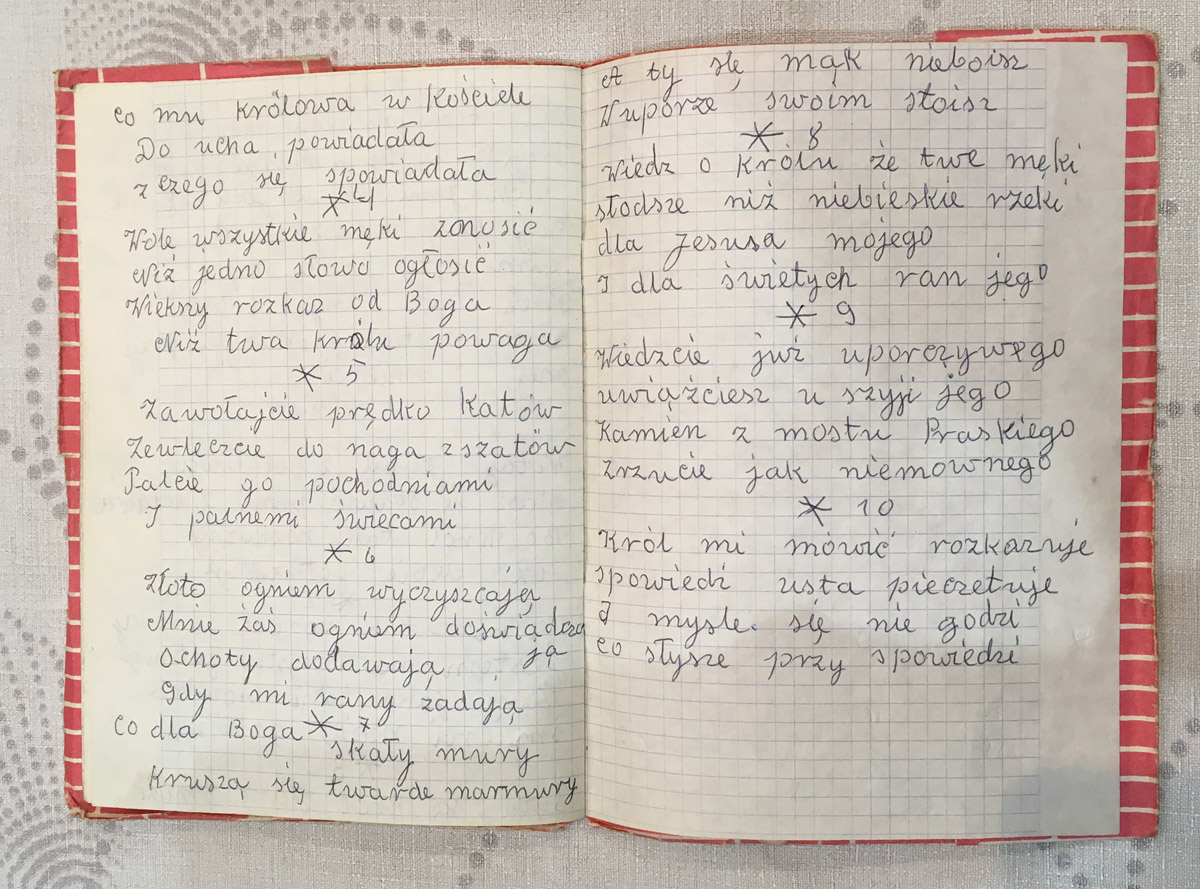 co mu królowa w Kościele
Do ucha powiadała
z czego się spowiadała
* 4
Wole wszystkie męki zonosić
Niż jedno słowo ogłosić
Wiekszy rozkaz od Boga
Niż twa królu powaga
* 5
Zawołajcie prędko Katów
Zewleczcie do naga z szatów
Palcie go pochodniami
I palnemi świecami
* 6
Złoto ogniem wyczyszcają
Mnie żaś ogniem doświądcza
ją
Ochoty dodawają
gdy mi rany żadają
* 7
co dla Boga skały mury
Kruszą się twarde marmury
A ty się mąk nieboisz
W uporze swoim stoisz
* 8
Wiedz o królu że twe męki
słodsze niż niebieskie rzeki
dla Jesusa mojego
I dla świetych ran jego
* 9
Wiedzcie już uporczywego
uwiąźciesz u szyji jego
Kamien z mostu Praskiego
Zrzucie jak niemownego
* 10
Król mi mówić rozkazuje
spowiedź usta pieczetuje
I mysle. się nie godzi
co słysze przy spowiedzi